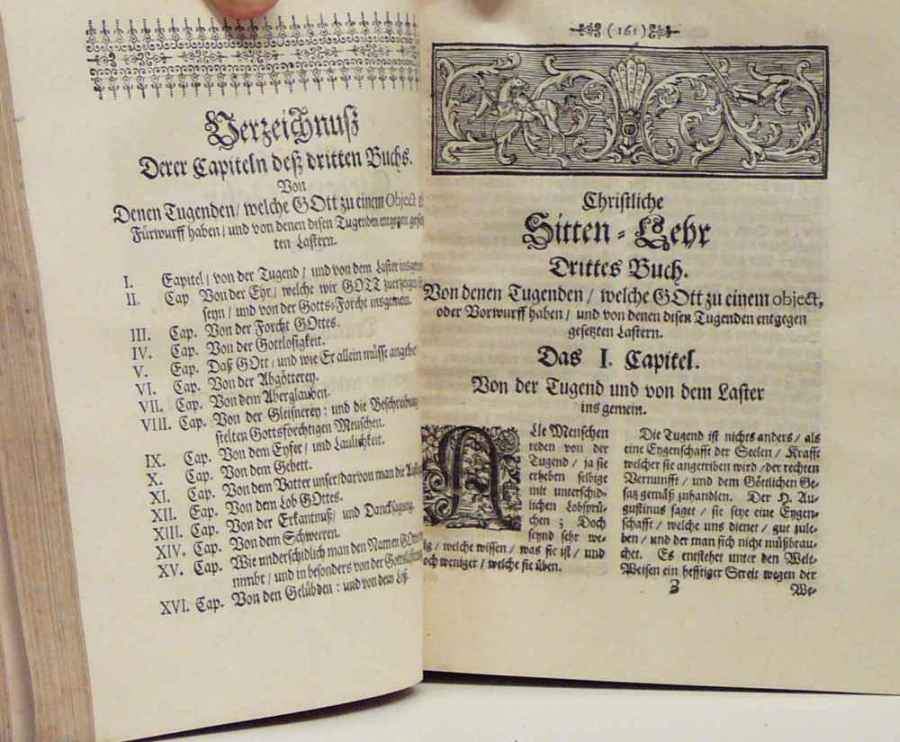 Verzeichnuß
Derer Capiteln deß dritten Buchs.
Von
Denen Tugenden / welche GOtt zu einem Object
Fürwurff haben / und von denen disen Tugenden entgegen
ten Lastern.
I. Capitel / von der Tugend / und von dem Laster
II. Cap. Von der Ehr / welche wir GOTT
seyn / und von der Gotts-Forcht insgemein.
III. Cap. Von der Forcht GOttes.
IV. Cap. Von der Gottlosigkeit.
V. Cap. Daß GOtt / und wie Er allein müsse
VI. Cap. Von der Abgötterey.
VII. Cap. Von dem Aberglauben.
VIII. Cap. Von der Gleisnerey: und die Beschreibung
stelten Gottsförchtigen Menschen.
IX. Cap. Von dem Eyfer / und Laulichkeit.
X. Cap. Von dem Gebett.
XI. Cap. Von dem Vatter unser / darvon man die
XII. Cap. Von dem Lob GOttes.
XIII. Cap. Von der Erkantnuß / und Dancksagung.
XIV. Cap. Von dem Schweeren.
XV. Cap. Wie underschidlich man den Namen
nimbt / und in besonders von der
XVI. Cap. Von den Gelübden: und von dem
(161)
Christliche
Sitten-Lehr
Drittes Buch.
Von denen Tugenden / welche GOtt zu einem object,
oder Vorwurff haben / und von denen disen Tugenden entgegen
gesetzten Lastern.
Das I. Capitel.
Von der Tugend und von dem Laster
ins gemein.
ALle Menschen
reden von der
Tugend / ja sie
erheben selbige
mit unterschid-
lichen Lobsprü-
chen; Doch
seynd sehr we-
nig / welche wissen / was sie ist / und
noch weniger / welche sie üben.
Die Tugend ist nichts anders / als
eine Eygenschafft der Seelen / Krafft
welcher sie angetriben wird / der rechten
Vernunfft / und dem Göttlichen Ge-
satz gemäß zuhandlen. Der H. Au-
gustinus saget / sie seye eine Eygen-
schafft / welche uns dienet / gut zule-
ben / und der man sich nicht mißbrau-
chet. Es entstehet unter den Welt-
Weisen ein hefftiger Streit wegen der
We-